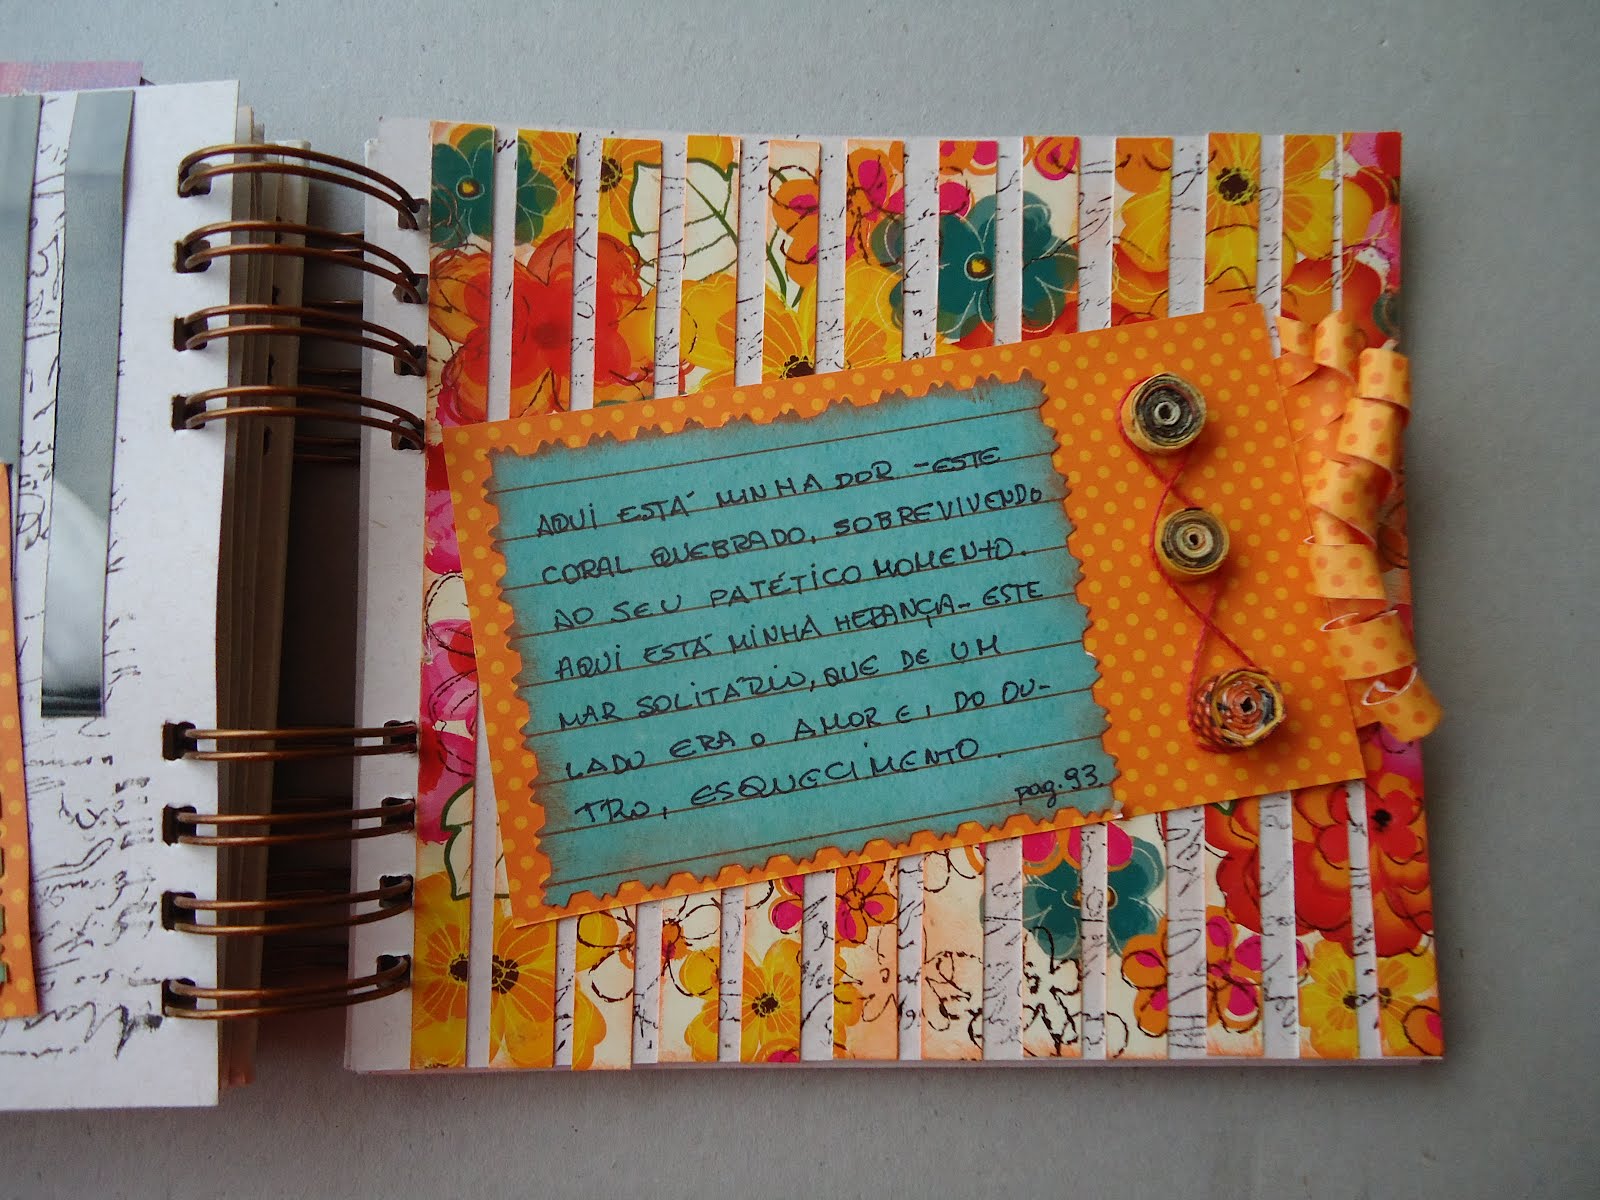 AQUI ESTÁ MINHA DOR - ESTE
CORAL QUEBRADO, SOBREVIVENDO
AO SEU PATÉTICO MOMENTO.
AQUI ESTÁ MINHA HERANÇA - ESTE
MAR SOLITÁRIO, QUE DE UM
LADO ERA O AMOR E, DO OU-
TRO, ESQUECIMENTO.
pag. 93